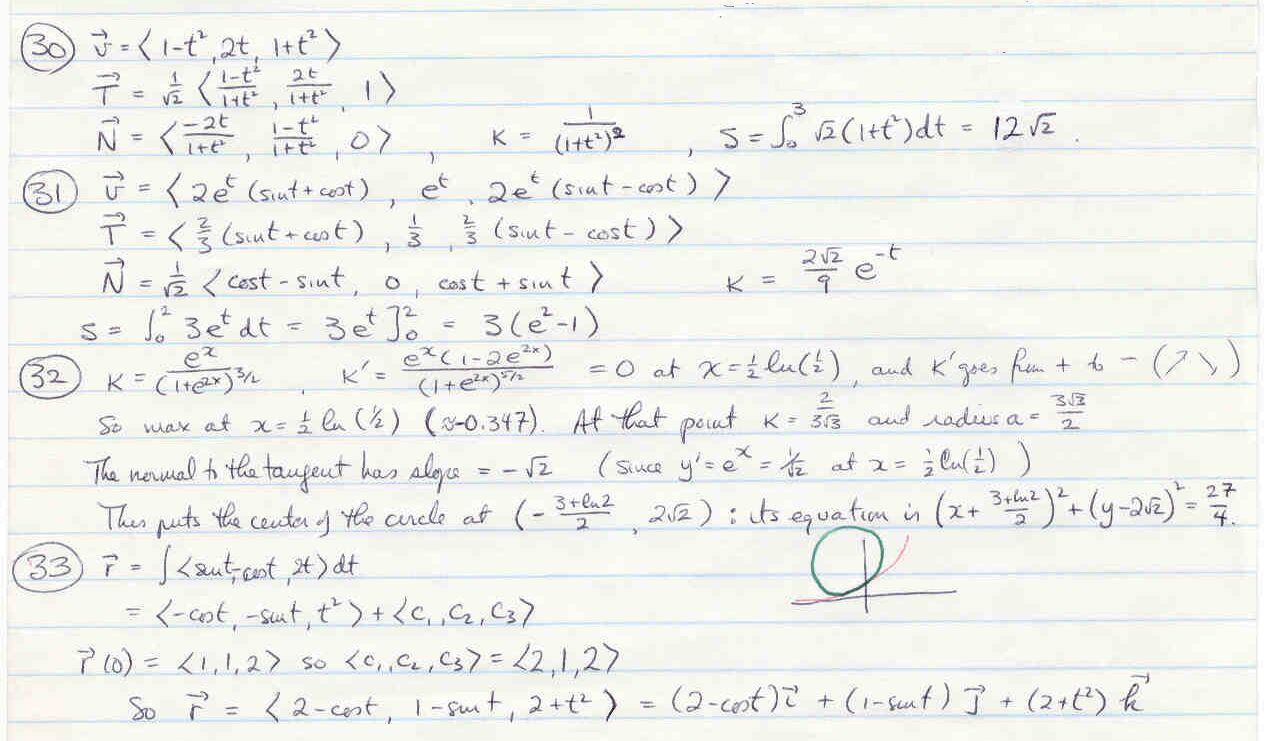 (30) v⃗ = ⟨1-t², 2t, 1+t²⟩
T⃗ = 1/√2 ⟨(1-t²)/(1+t²), 2t/(1+t²), 1⟩
N⃗ = ⟨-2t/(1+t²), (1-t²)/(1+t²), 0⟩, K = 1/(1+t²)², S = ∫₀³ √2(1+t²)dt = 12√2.
(31) v⃗ = ⟨2eᵗ(sint+cost), eᵗ, 2eᵗ(sint-cost)⟩
T⃗ = ⟨2/3(sint+cost), 1/3, 2/3(sint-cost)⟩
N⃗ = 1/√2 ⟨cost-sint, 0, cost+sint⟩ K = 2√2/9 e⁻ᵗ
S = ∫₀² 3eᵗdt = 3eᵗ]₀² = 3(e²-1)
(32) K = eˣ/(1+e²ˣ)^(3/2), K' = eˣ(1-2e²ˣ)/(1+e²ˣ)^(5/2) = 0 at x=½ln(½), and K' goes from + to - (↗↘)
So max at x=½ln(½) (≈-0.347). At that point K = 2/(3√3) and radius a = 3√3/2
The normal to the tangent has slope = -√2 (since y'=eˣ=1/√2 at x=½ln(½))
This puts the center of the circle at (-(3+ln2)/2, 2√2): its equation is (x+(3+ln2)/2)²+(y-2√2)²=27/4.
(33) r⃗ = ∫⟨sint,-cost,2t⟩dt
= ⟨-cost,-sint,t²⟩+⟨c₁,c₂,c₃⟩
r⃗(0) = ⟨1,1,2⟩ so ⟨c₁,c₂,c₃⟩=⟨2,1,2⟩
So r⃗ = ⟨2-cost, 1-sint, 2+t²⟩ = (2-cost)i⃗ + (1-sint)j⃗ + (2+t²)k⃗